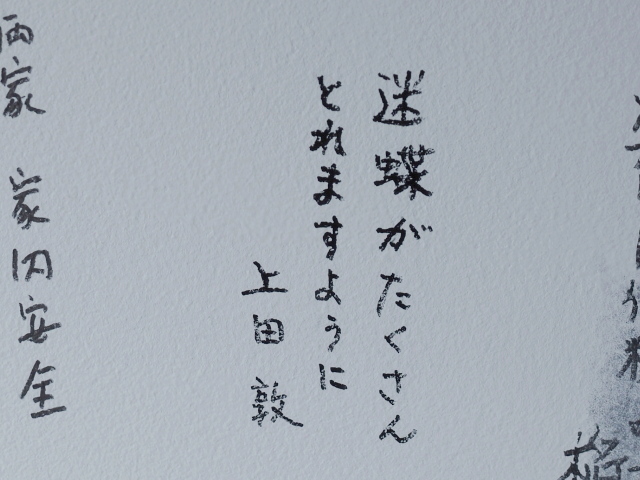 迷蝶がたくさん
とれますように
上田敦
両家 家内安全